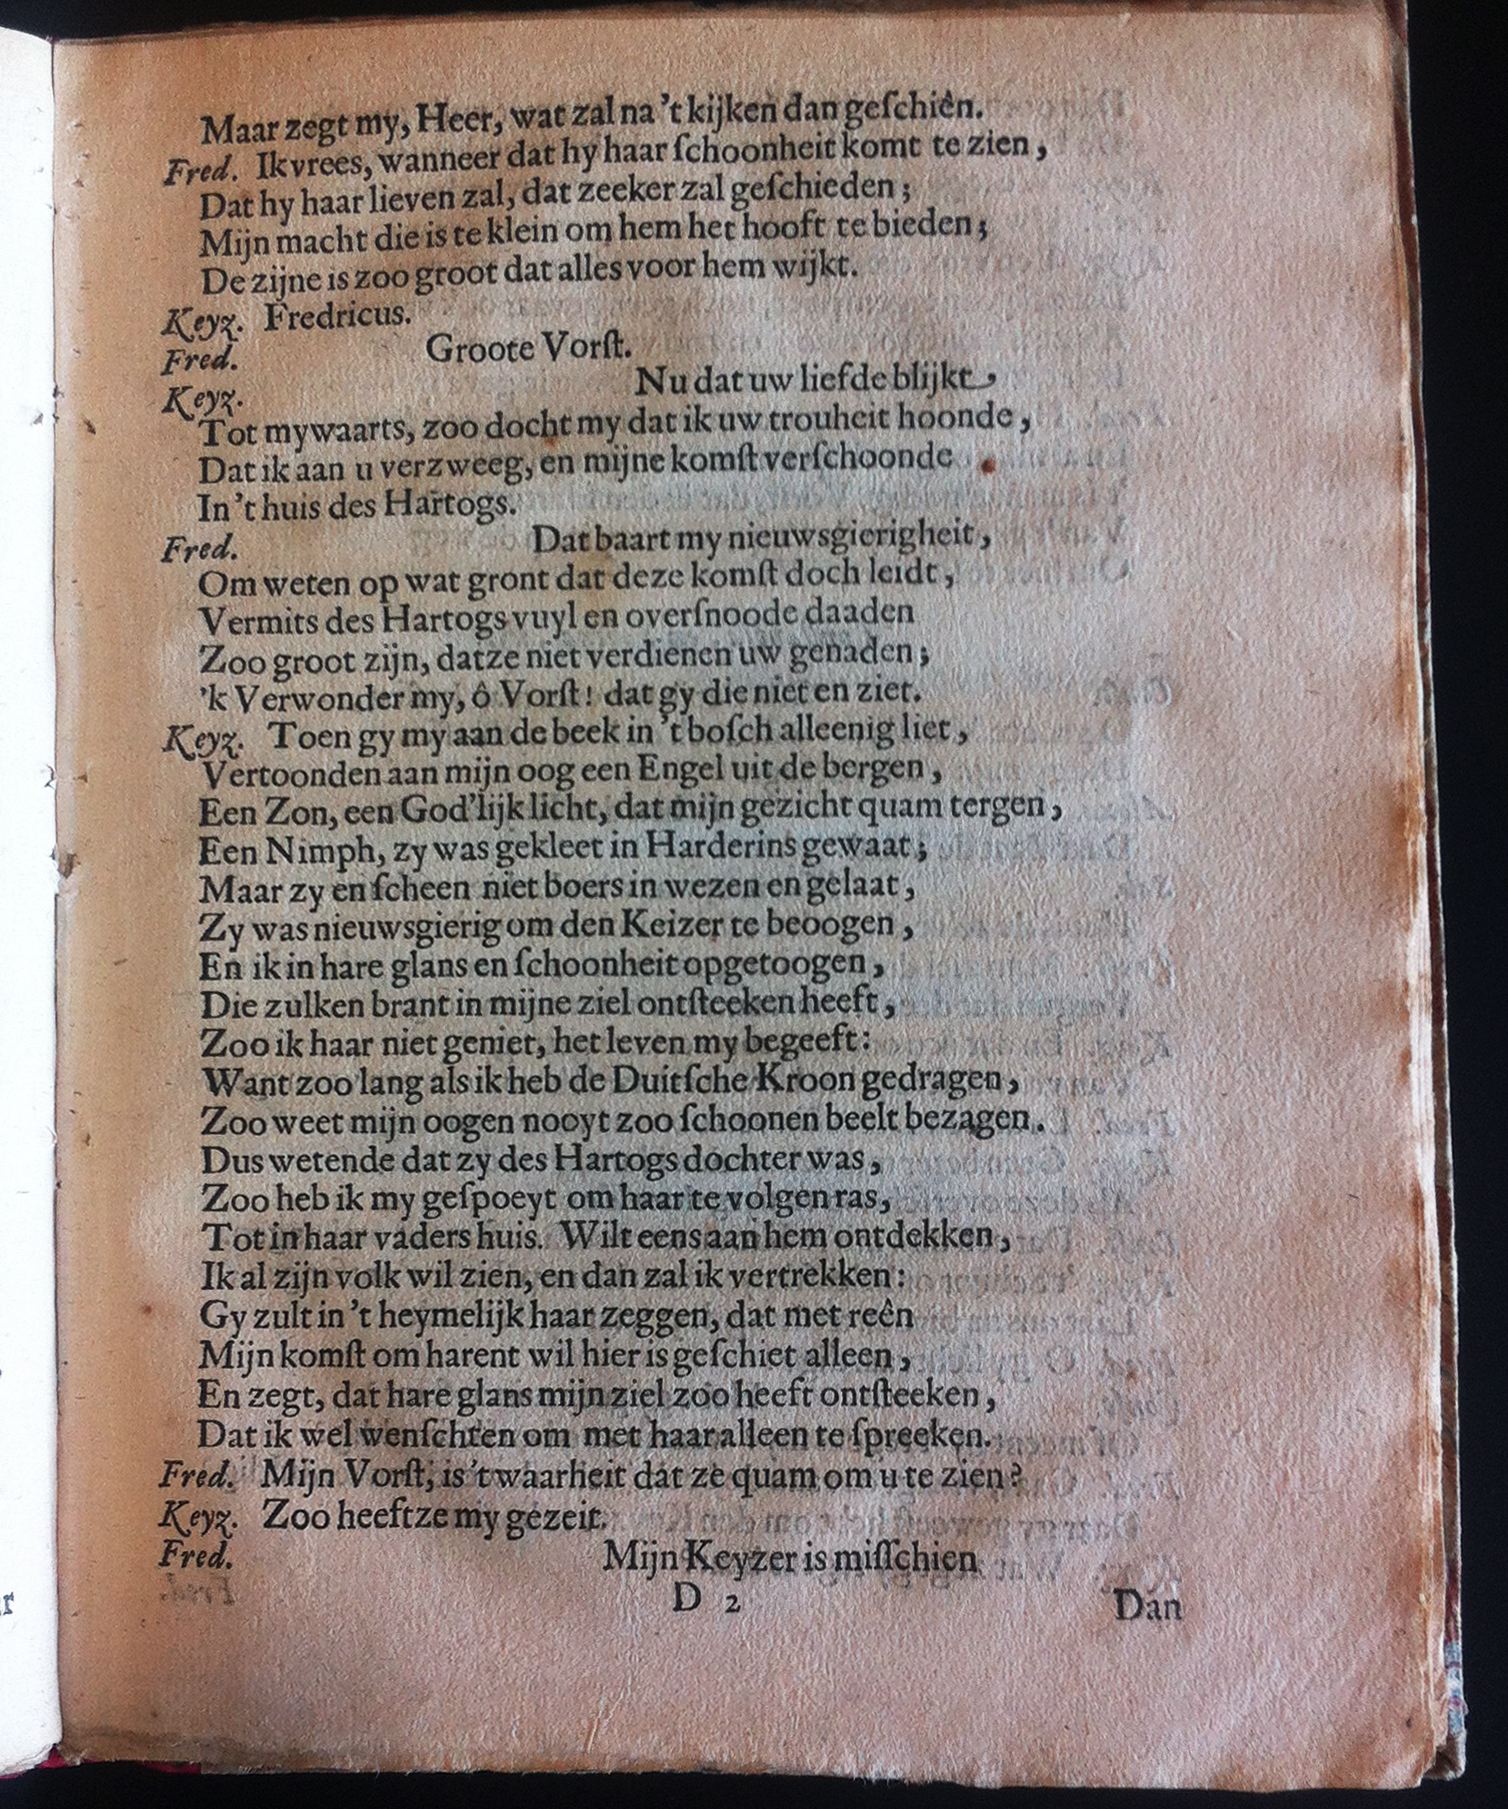 Maar zegt my, Heer, wat zal na 't kijken dan geſchiên.
Fred. Ik vrees, wanneer dat hy haar ſchoonheit komt te zien,
Dat hy haar lieven zal, dat zeeker zal geſchieden;
Mijn macht die is te klein om hem het hooft te bieden;
De zijne is zoo groot dat alles voor hem wijkt.
Keyz. Fredricus.
Fred. Groote Vorſt.
Keyz. Nu dat uw liefde blijkt,
Tot mywaarts, zoo docht my dat ik uw trouheit hoonde,
Dat ik aan u verzweeg, en mijne komſt verſchoonde
In 't huis des Hartogs.
Fred. Dat baart my nieuwsgierigheit,
Om weten op wat gront dat deze komſt doch leidt,
Vermits des Hartogs vuyl en overſnoode daaden
Zoo groot zijn, datze niet verdienen uw genaden;
'k Verwonder my, ô Vorſt! dat gy die niet en ziet.
Keyz. Toen gy my aan de beek in 't boſch alleenig liet,
Vertoonden aan mijn oog een Engel uit de bergen,
Een Zon, een God'lijk licht, dat mijn gezicht quam tergen,
Een Nimph, zy was gekleet in Harderins gewaat;
Maar zy en ſcheen niet boers in wezen en gelaat,
Zy was nieuwsgierig om den Keizer te beoogen,
En ik in hare glans en ſchoonheit opgetoogen,
Die zulken brant in mijne ziel ontſteeken heeft,
Zoo ik haar niet geniet, het leven my begeeft:
Want zoo lang als ik heb de Duitſche Kroon gedragen,
Zoo weet mijn oogen nooyt zoo ſchoonen beelt bezagen.
Dus wetende dat zy des Hartogs dochter was,
Zoo heb ik my geſpoeyt om haar te volgen ras,
Tot in haar vaders huis. Wilt eens aan hem ontdekken,
Ik al zijn volk wil zien, en dan zal ik vertrekken:
Gy zult in 't heymelijk haar zeggen, dat met reên
Mijn komſt om harent wil hier is geſchiet alleen,
En zegt, dat hare glans mijn ziel zoo heeft ontſteeken,
Dat ik wel wenſchten om met haar alleen te ſpreeken.
Fred. Mijn Vorſt, is 't waarheit dat ze quam om u te zien?
Keyz. Zoo heeftze my gezeit.
Fred. Mijn Keyzer is miſſchien
D 2 Dan